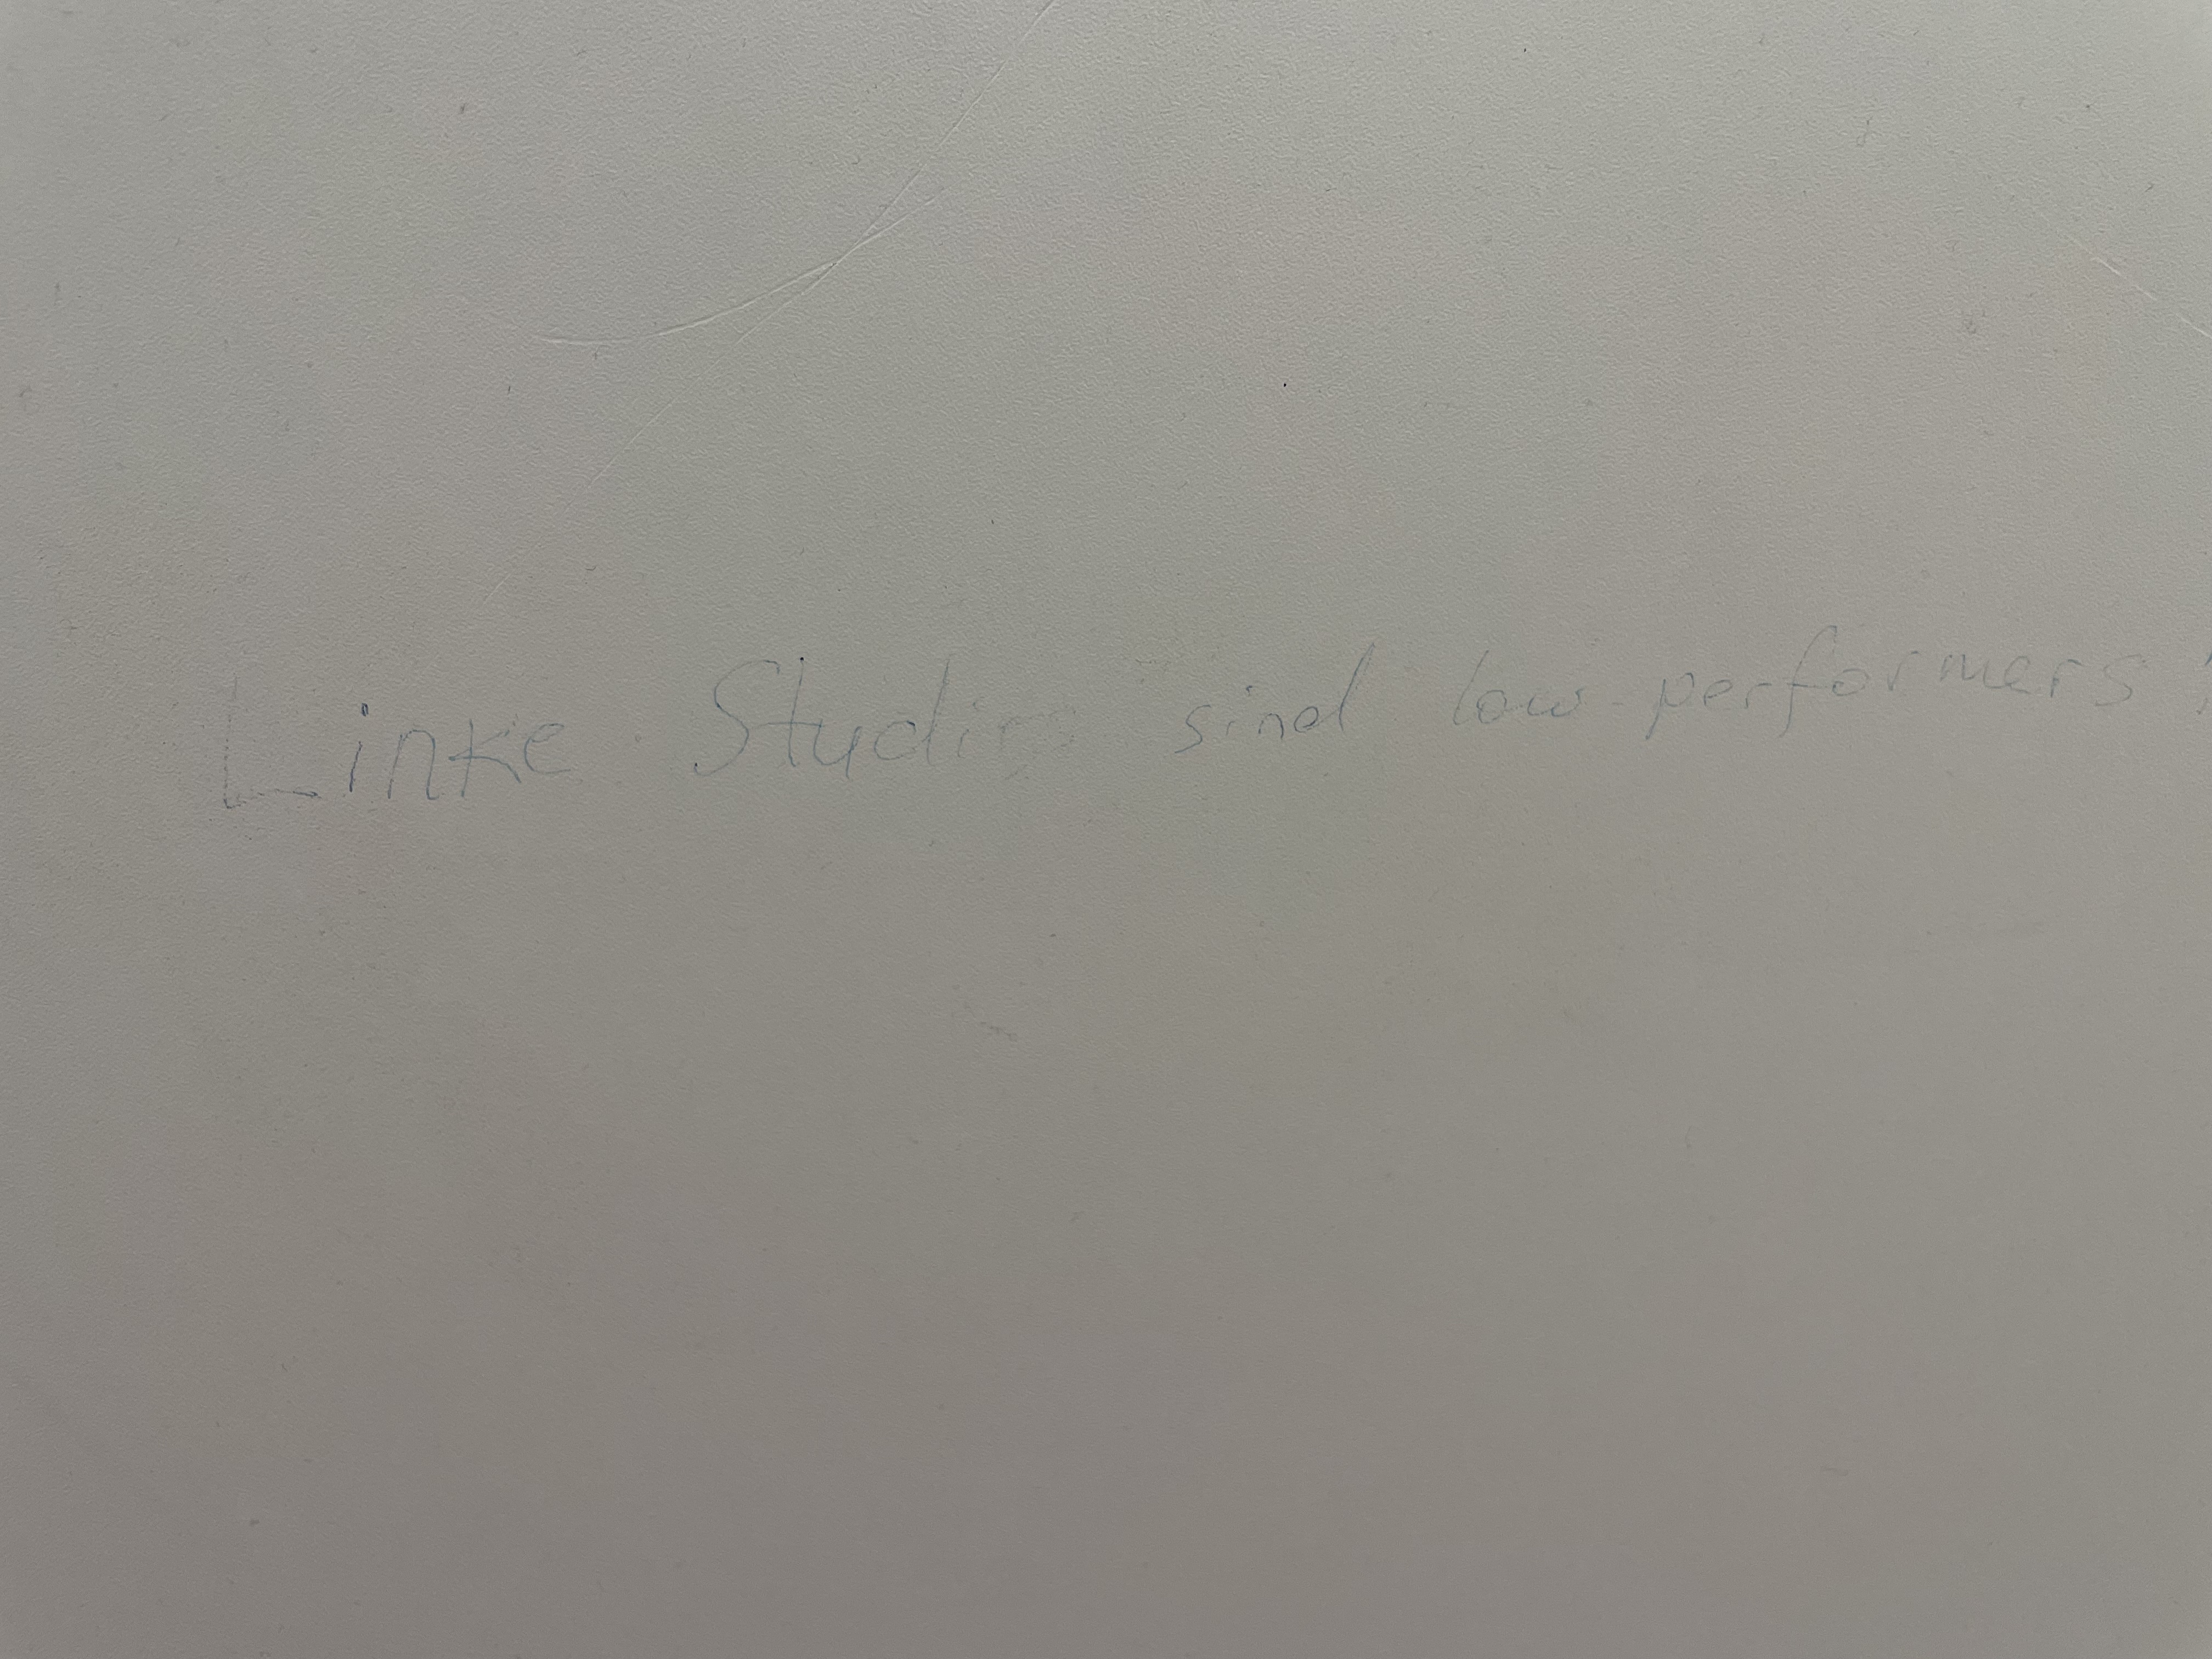 Linke Studis sind low-performers!